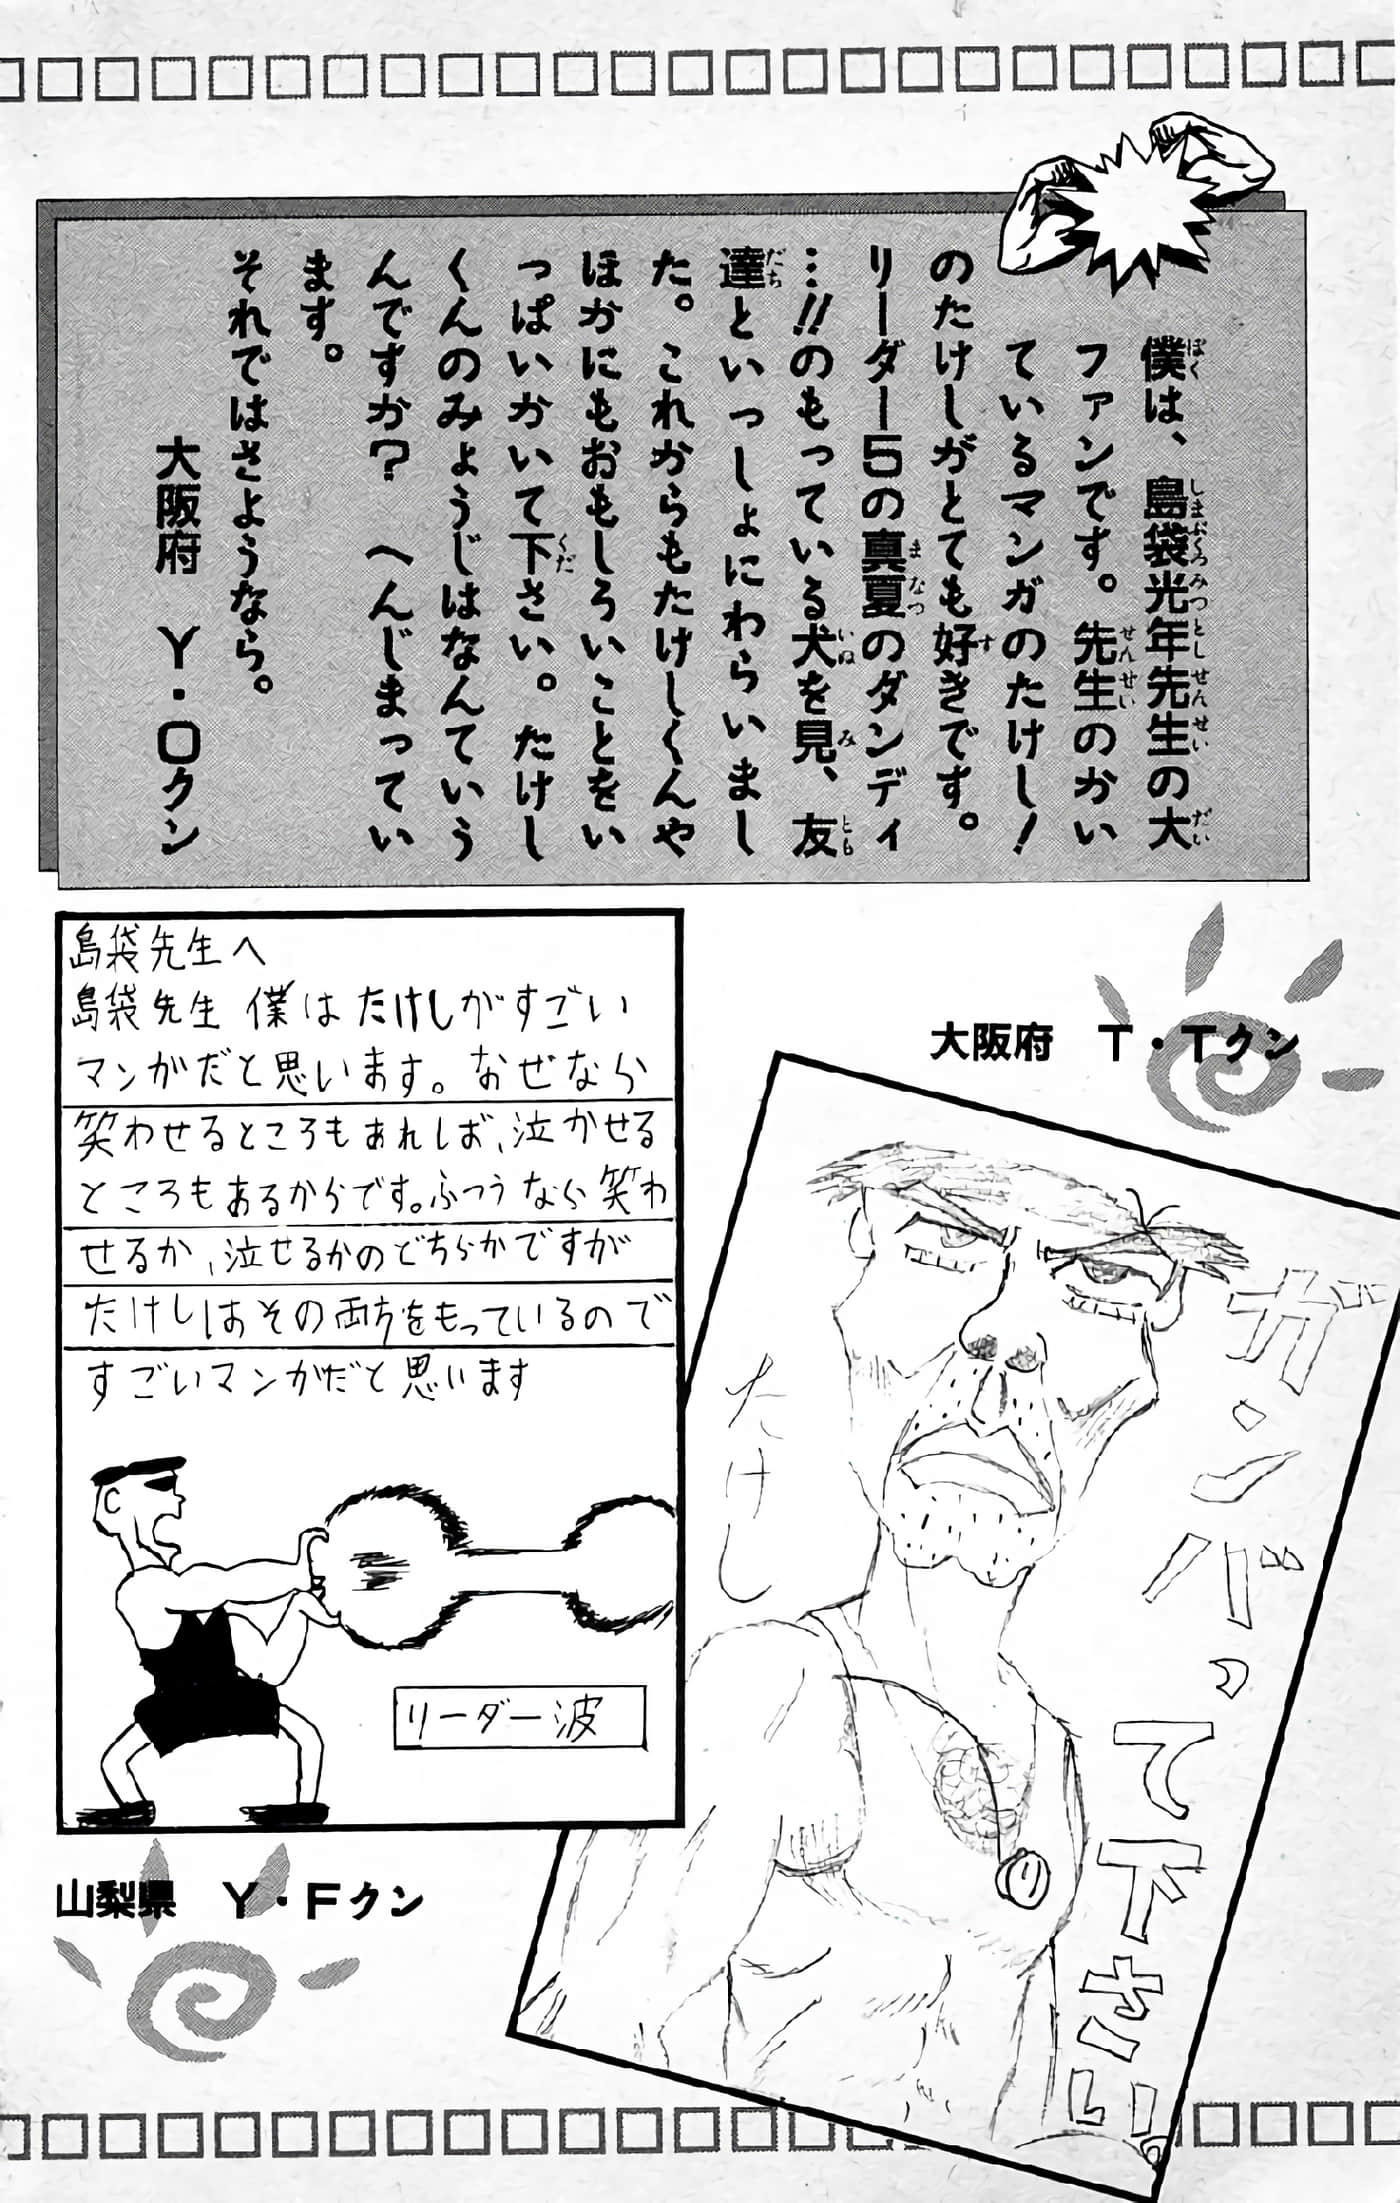 僕は、島袋光年先生の大
ファンです。先生のかい
ているマンガのたけし！
のたけしがとても好きです。
リーダー5の真夏のダンディ
…!!のもっている犬を見、友
達といっしょにわらいまし
た。これからもたけしくんや
ほかにもおもしろいことをい
っぱいかいて下さい。たけし
くんのみょうじはなんていう
んですか？　へんじまってい
ます。
それではさようなら。
大阪府　Y・Oクン
大阪府　T・Tクン
ガンバって下さい。
たけし
リ
島袋先生へ
島袋先生 僕はたけしがすごい
マンガだと思います。なぜなら
笑わせるところもあれしば、泣かせる
ところもあるからです。ふつうなら笑わ
せるか、泣せるかのどちらかですが
たけしはその両方をもっているので
すごいマンガだと思います
リーダー波
山梨県　Y・Fクン